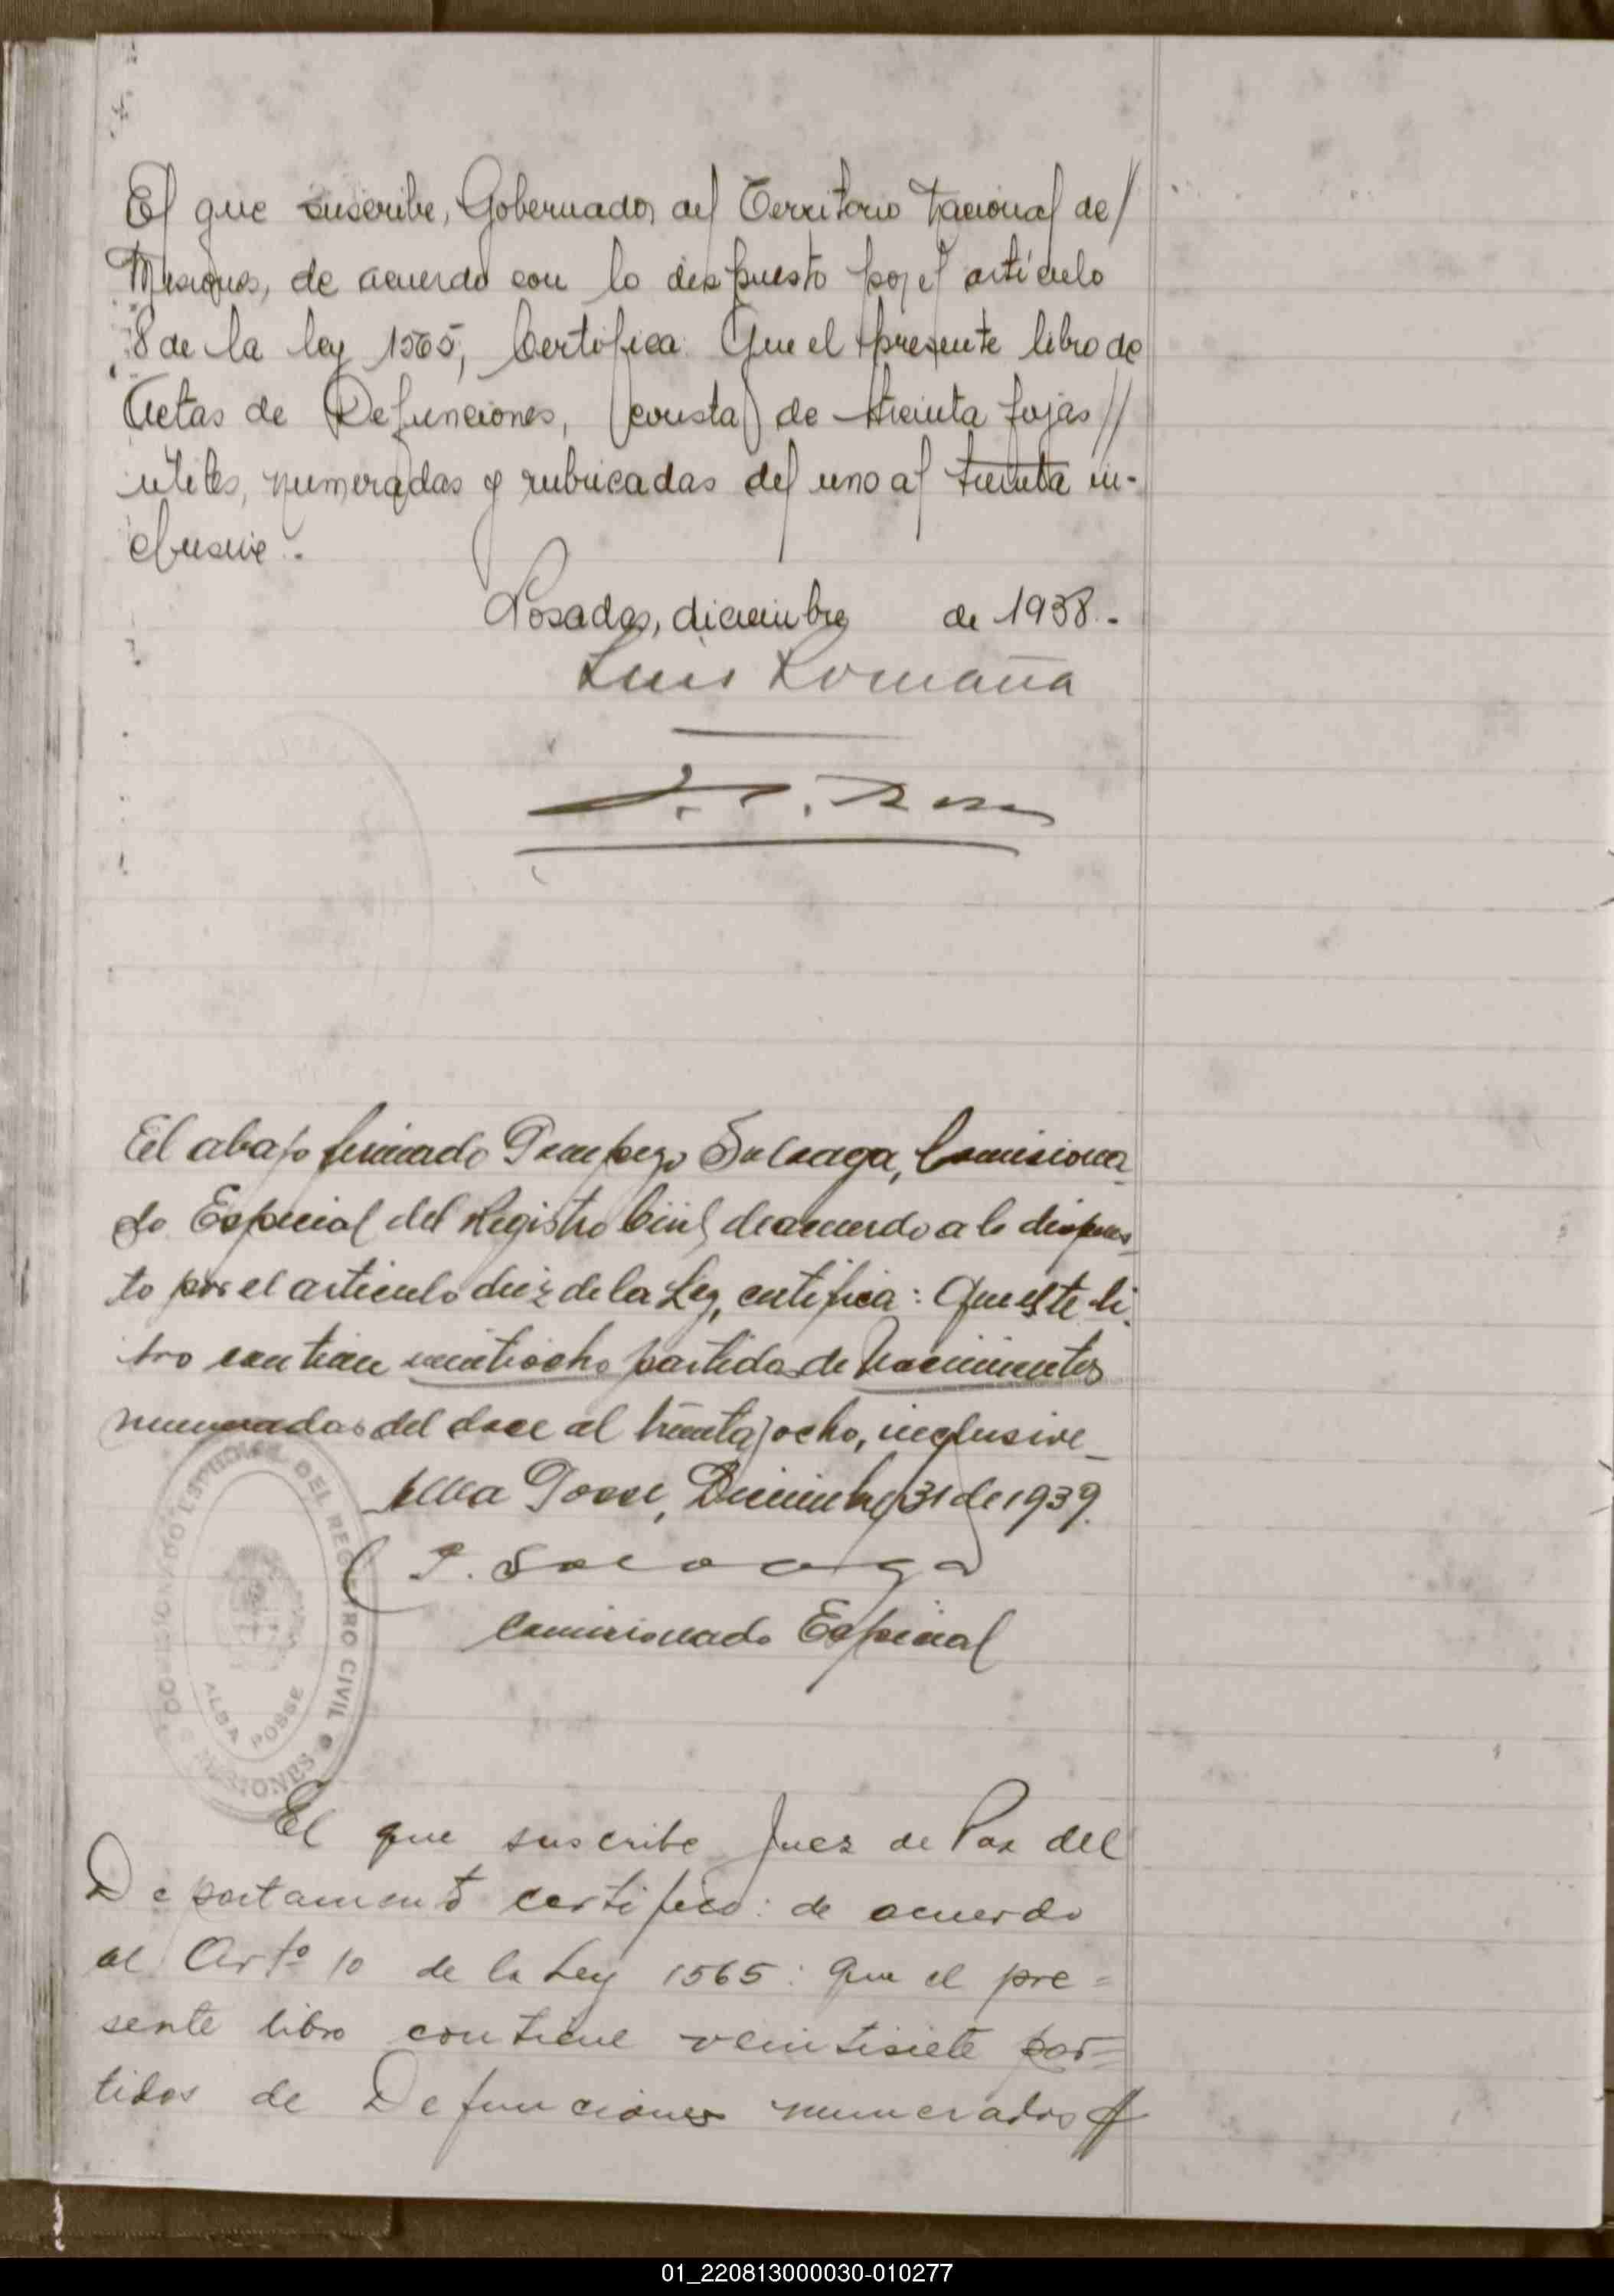 El que suscribe, Gobernador del Territorio Nacional de//
Misiones, de acuerdo con lo dispuesto por el artículo
8 de la ley 1565, Certifica: Que el presente libro de
Actas de Defunciones, (consta) de treinta fojas//
utiles, numeradas y rubricadas del uno al treinta in-
clusive.-
Posadas, diciembre de 1938.-
Luis Romaña
El abajo firmado Pompeyo Suleaga, Comisiona-
do Especial del Registro Civil, de acuerdo a lo dispues-
to por el articulo diez de la Ley, certifica: Que este li-
bro contiene veintiocho partidas de Nacimientos
numeradas del doce al treinta y ocho, inclusive_
Alba Posse, Diciembre 31 de 1939.
Comisionado Especial
COMISIONADO ESPECIAL DEL REGISTRO CIVIL
ALBA POSSE
MISIONES
El que suscribe Juez de Paz del
Departamento certifico: de acuerdo
al Artº 10 de la Ley 1565: Que el pre=
sente libro contiene veintisiete par=
tidas de Defunciones numeradas//
01_220813000030-010277